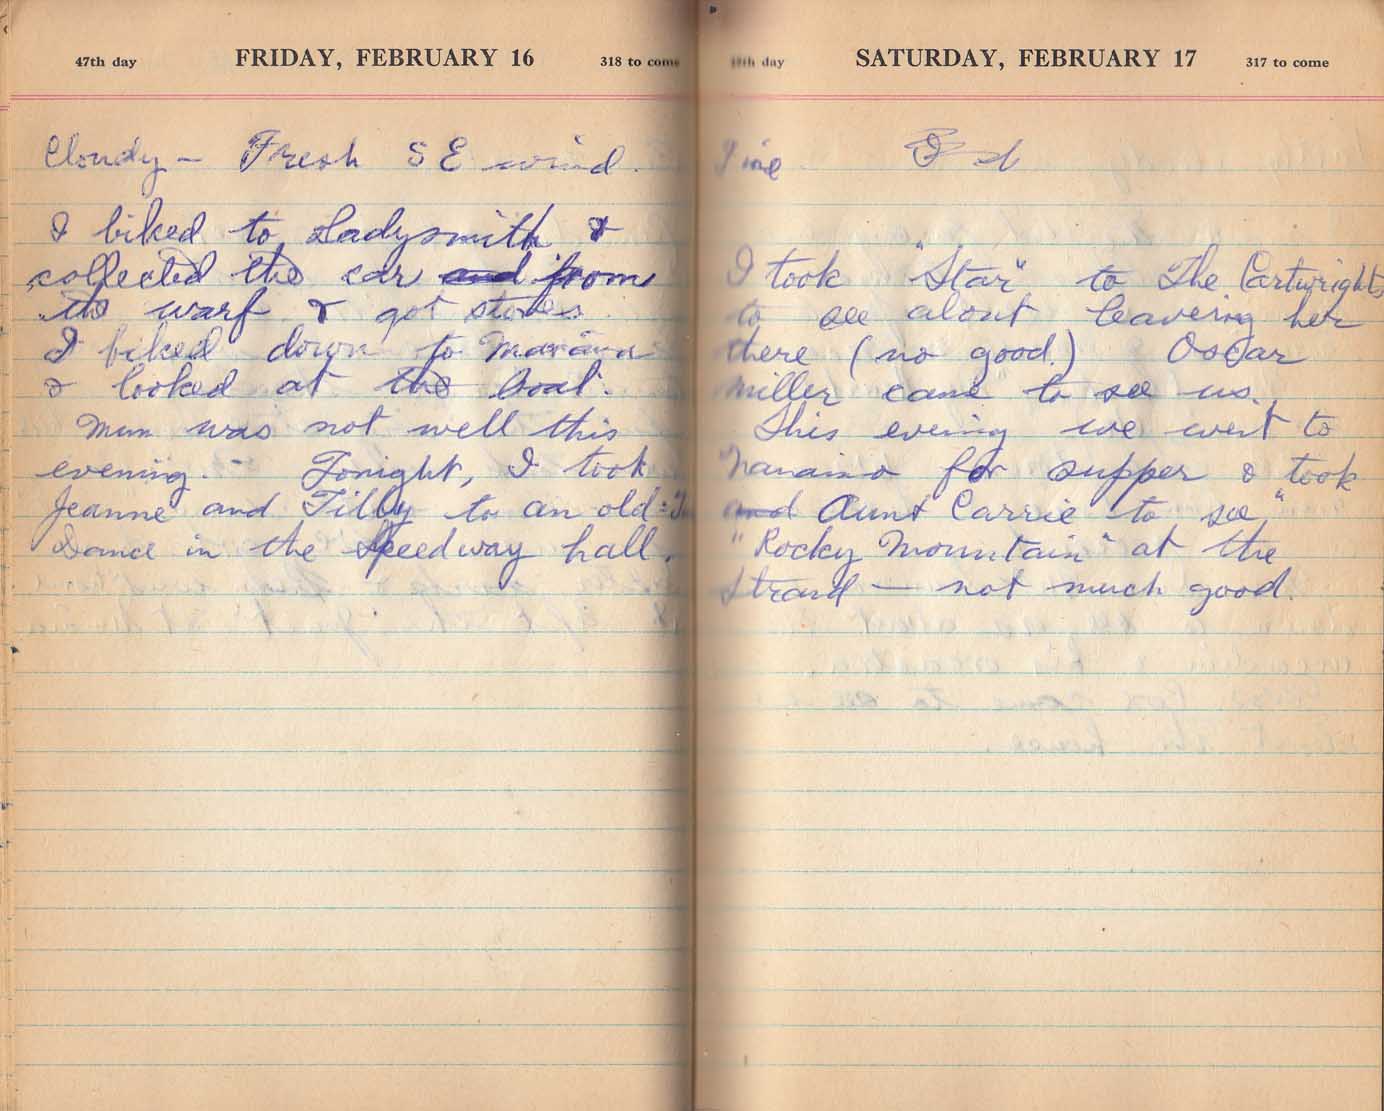 47th day FRIDAY, FEBRUARY 16 318 to come
Cloudy - Fresh S E wind.
I biked to Ladysmith &
collected the car and from
the warf & got stores
I biked down to Marina
& looked at the boat.
Mum was not well this
evening. - Tonight, I took
Jeanne and Tilly to an old =
Dance in the Speedway hall.
48th day SATURDAY, FEBRUARY 17 317 to come
Fine
I took "Star" to The Cartwrights
to see about leavering her
there (no good.) Oscar
Miller came to see us.
This evening we went to
Nanaimo for supper & took
and Aunt Carrie to see "
"Rocky Mountain" at the
Strand — not much good.